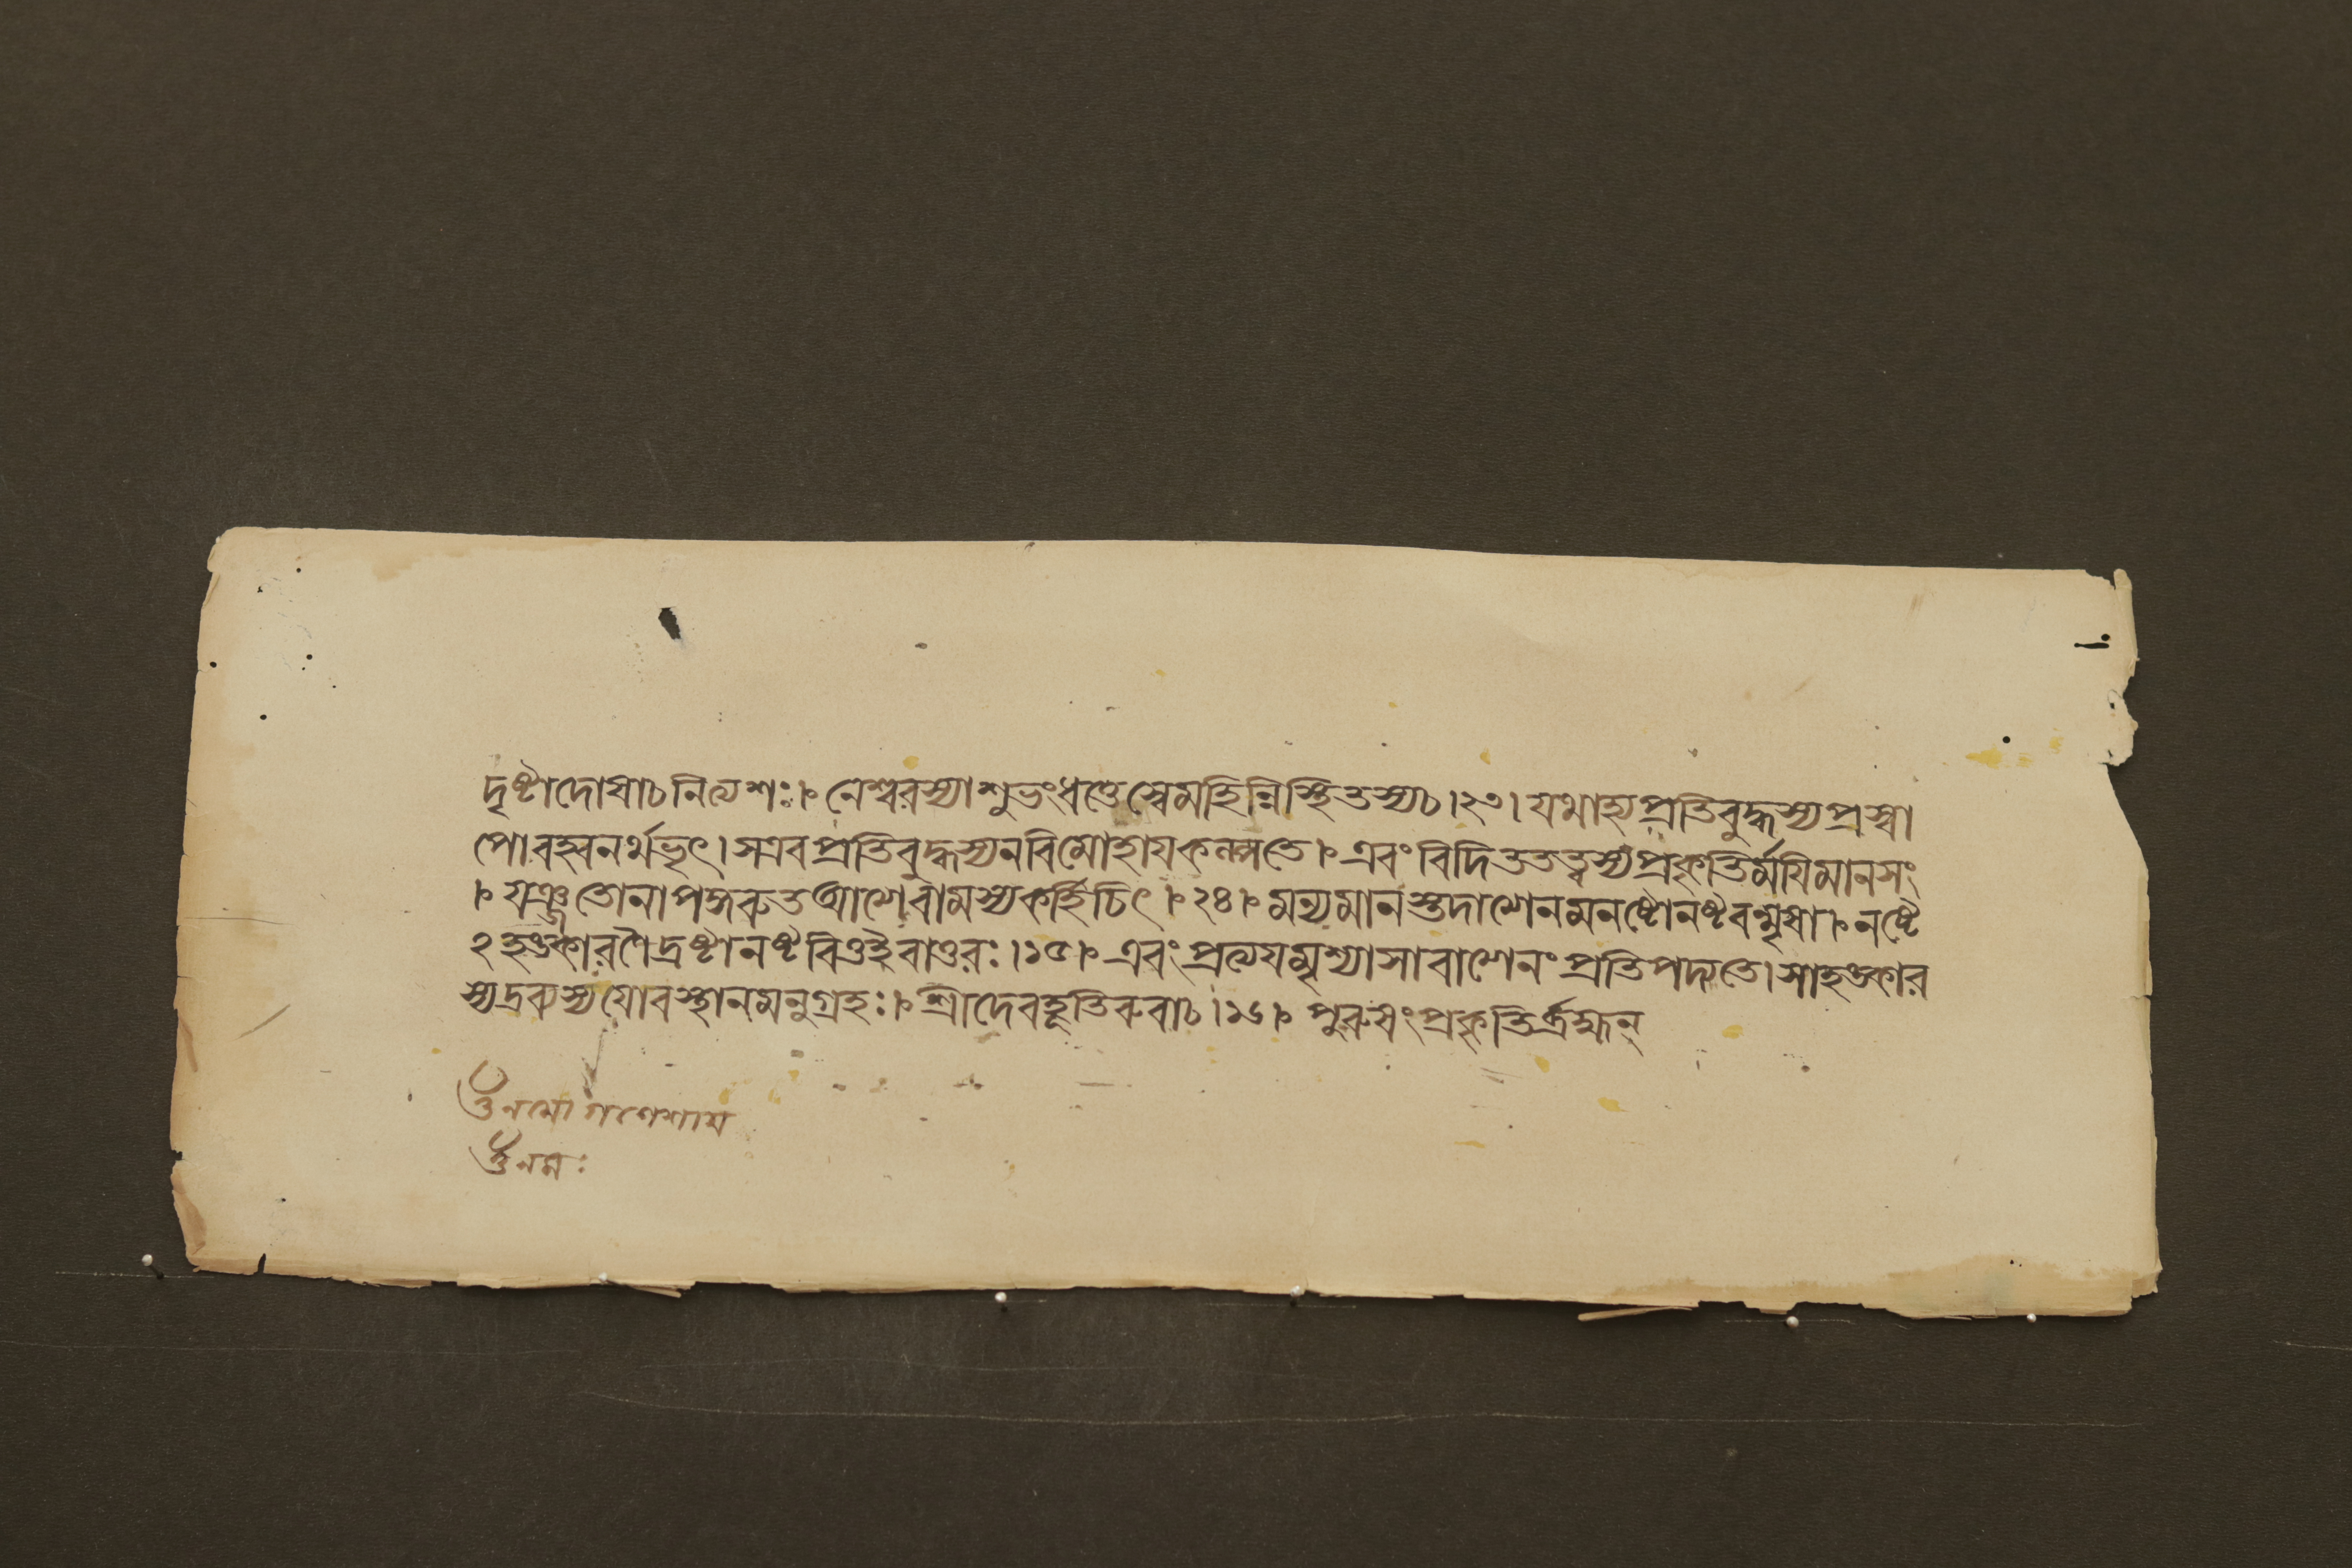 দৃষ্টাদোষাচনিত্যশঃ। নেশ্বরস্যাশুভংধত্তেস্বেমহিম্নিস্থিতস্যচ।২৩। যথাহ্যপ্রতিবুদ্ধস্যপ্রস্বা
পোবহ্বনর্থভৃৎ। সএবপ্রতিবুদ্ধস্যনবিমোহায়কল্পতে। এবং বিদিততত্ত্বস্যপ্রকৃতির্ময়িমানসং
। যুঞ্জতোনাপকরুতআত্মারামস্যকর্হিচিৎ। ২৪। মন্যমানস্তদাত্মানমনষ্টোনষ্টবন্মৃষা। নষ্টে
২হঙ্কারণৈদ্রষ্টানষ্টবিত্তইবাতুরঃ।১৫। এবংপ্রত্যয়মৃশ্যাসাবাত্মানংপ্রতিপদ্যতে। সাহঙ্কার
স্যদ্রব্যস্যযোবস্থানমনুগ্রহঃ। শ্রীদেবহূতিরুবাচ।১৬। পুরুষংপ্রকৃতির্ব্রহ্মন্
ওঁনমোগণেশায়
ওঁনমঃ